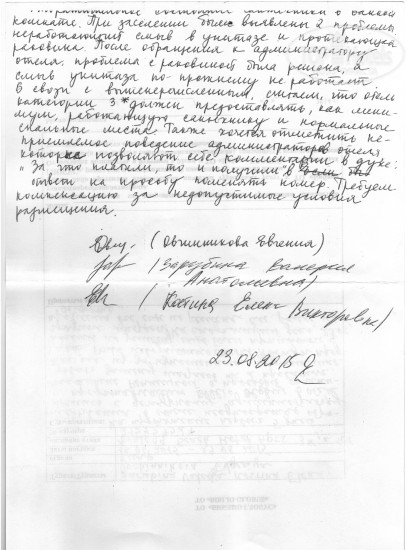 состояние сантехники в ванной
комнате. При заселении были выявлены 2 проблемы
неработающий смыв в унитазе и протекающая
раковина. После обращения к администратору
отеля. проблема с раковиной была решена, а
смыв унитаза по-прежнему не работает
В связи с вышеперечисленным, считаем, что отель
категории 3* должен предоставлять, как мини-
мум, работающую сантехнику и нормальные
спальные места. Также хотели отметить не-
приемлемое поведение администраторов отеля
которые позволяют себе комментарии в духе:
"За что платили, то и получили" в
ответ на просьбу поменять номер. Требуем
компенсацию за недопустимые условия
размещения.
(Овчинникова Евгения)
(Зарубина Валерия
Анатольевна)
Елена Викторовна)
23.08.2015